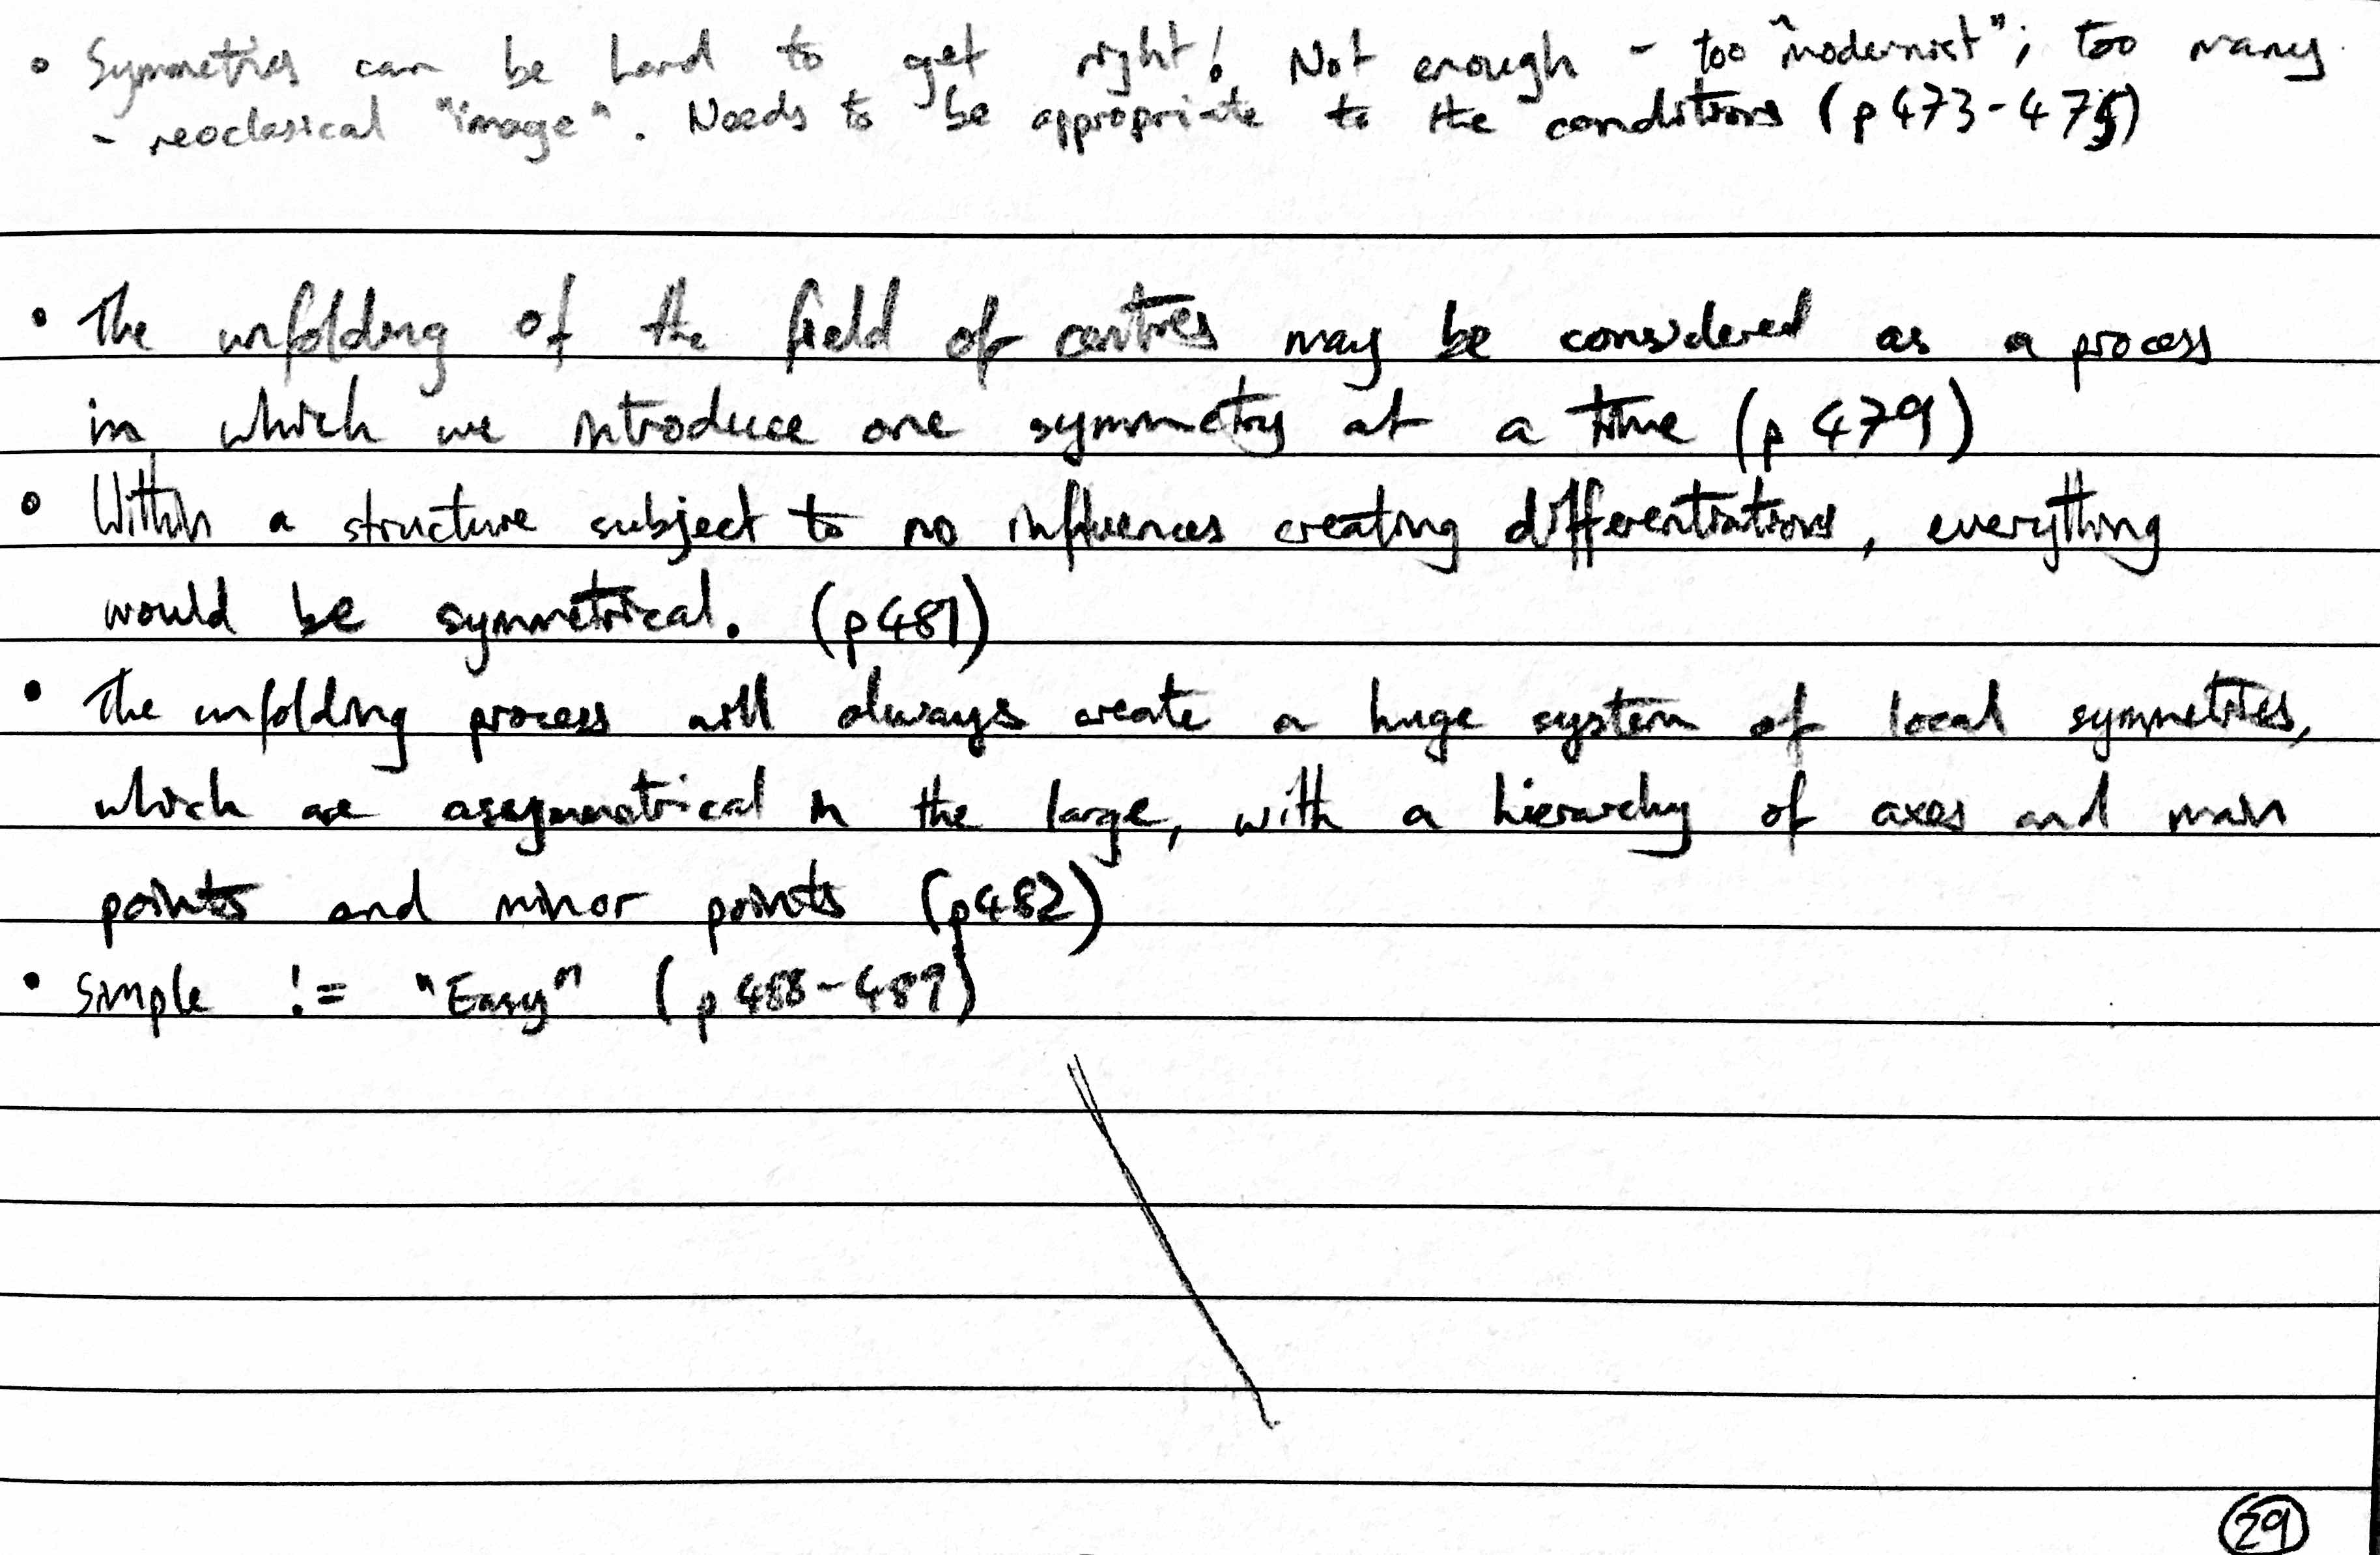 • Symmetries can be hard to get right! Not enough - too "modernist"; too many
- neoclasical "image". Needs to be appropriate to the conditions (p 473-475)
• The unfolding of the field of centres may be considered as a process
in which we introduce one symmetry at a time (p 479)
• Within a structure subject to no influences creating differentiations, everything
would be symmetrical. (p481)
• The unfolding process will always create a huge system of local symmetries,
which are asymmetrical in the large, with a hierarchy of axes and main
points and minor points (p482)
• Simple != "Easy" (p 488-489)
29